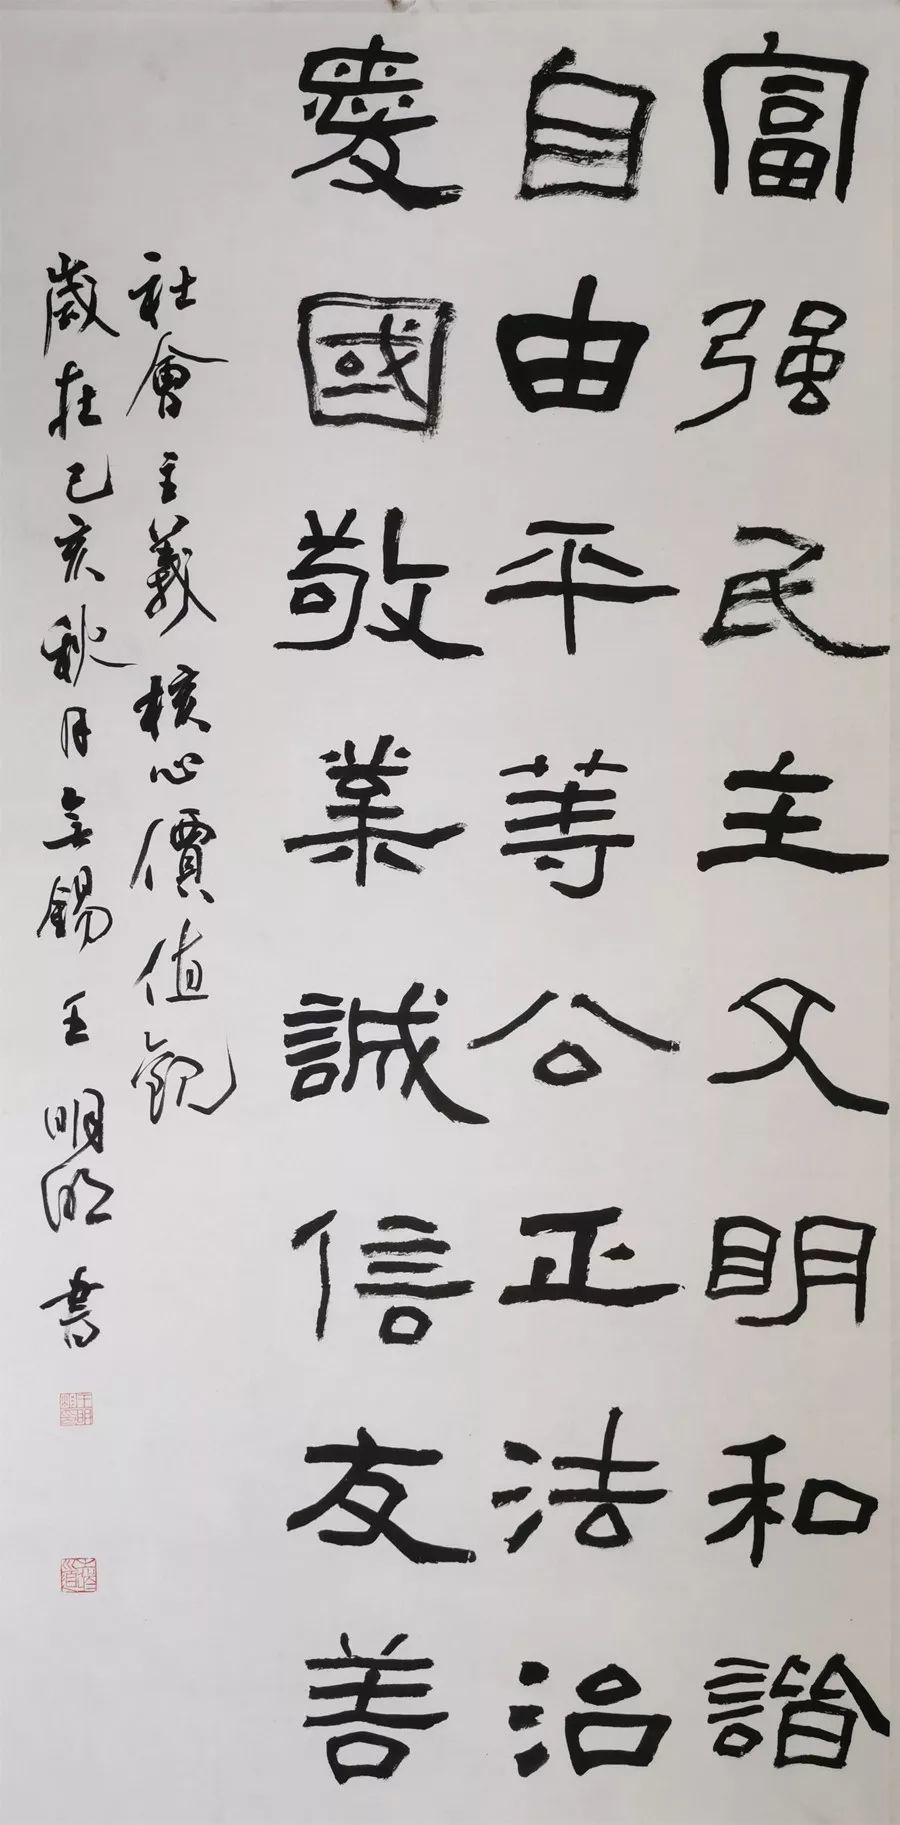 富强民主文明和諧
自由平等公正法治
愛國敬業誠信友善
社會主義核心價值觀
歲在己亥秋月無錫王明明書